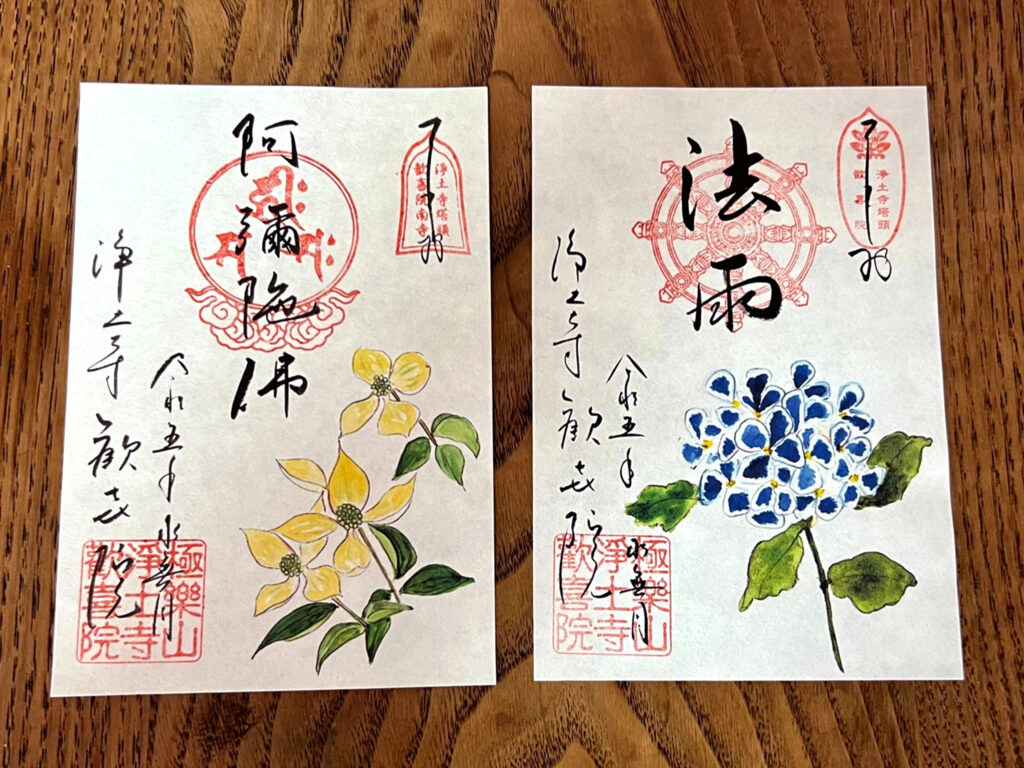 奉拝
浄土寺塔頭
歓喜院南寺
阿彌陀佛
令和五年 水無月
浄土寺 歓喜院
極樂山
浄土寺
歡喜院
奉拝
浄土寺塔頭
歓喜院
法雨
令和五年
水無月
浄土寺 歓喜院
極樂山
浄土寺
歡喜院